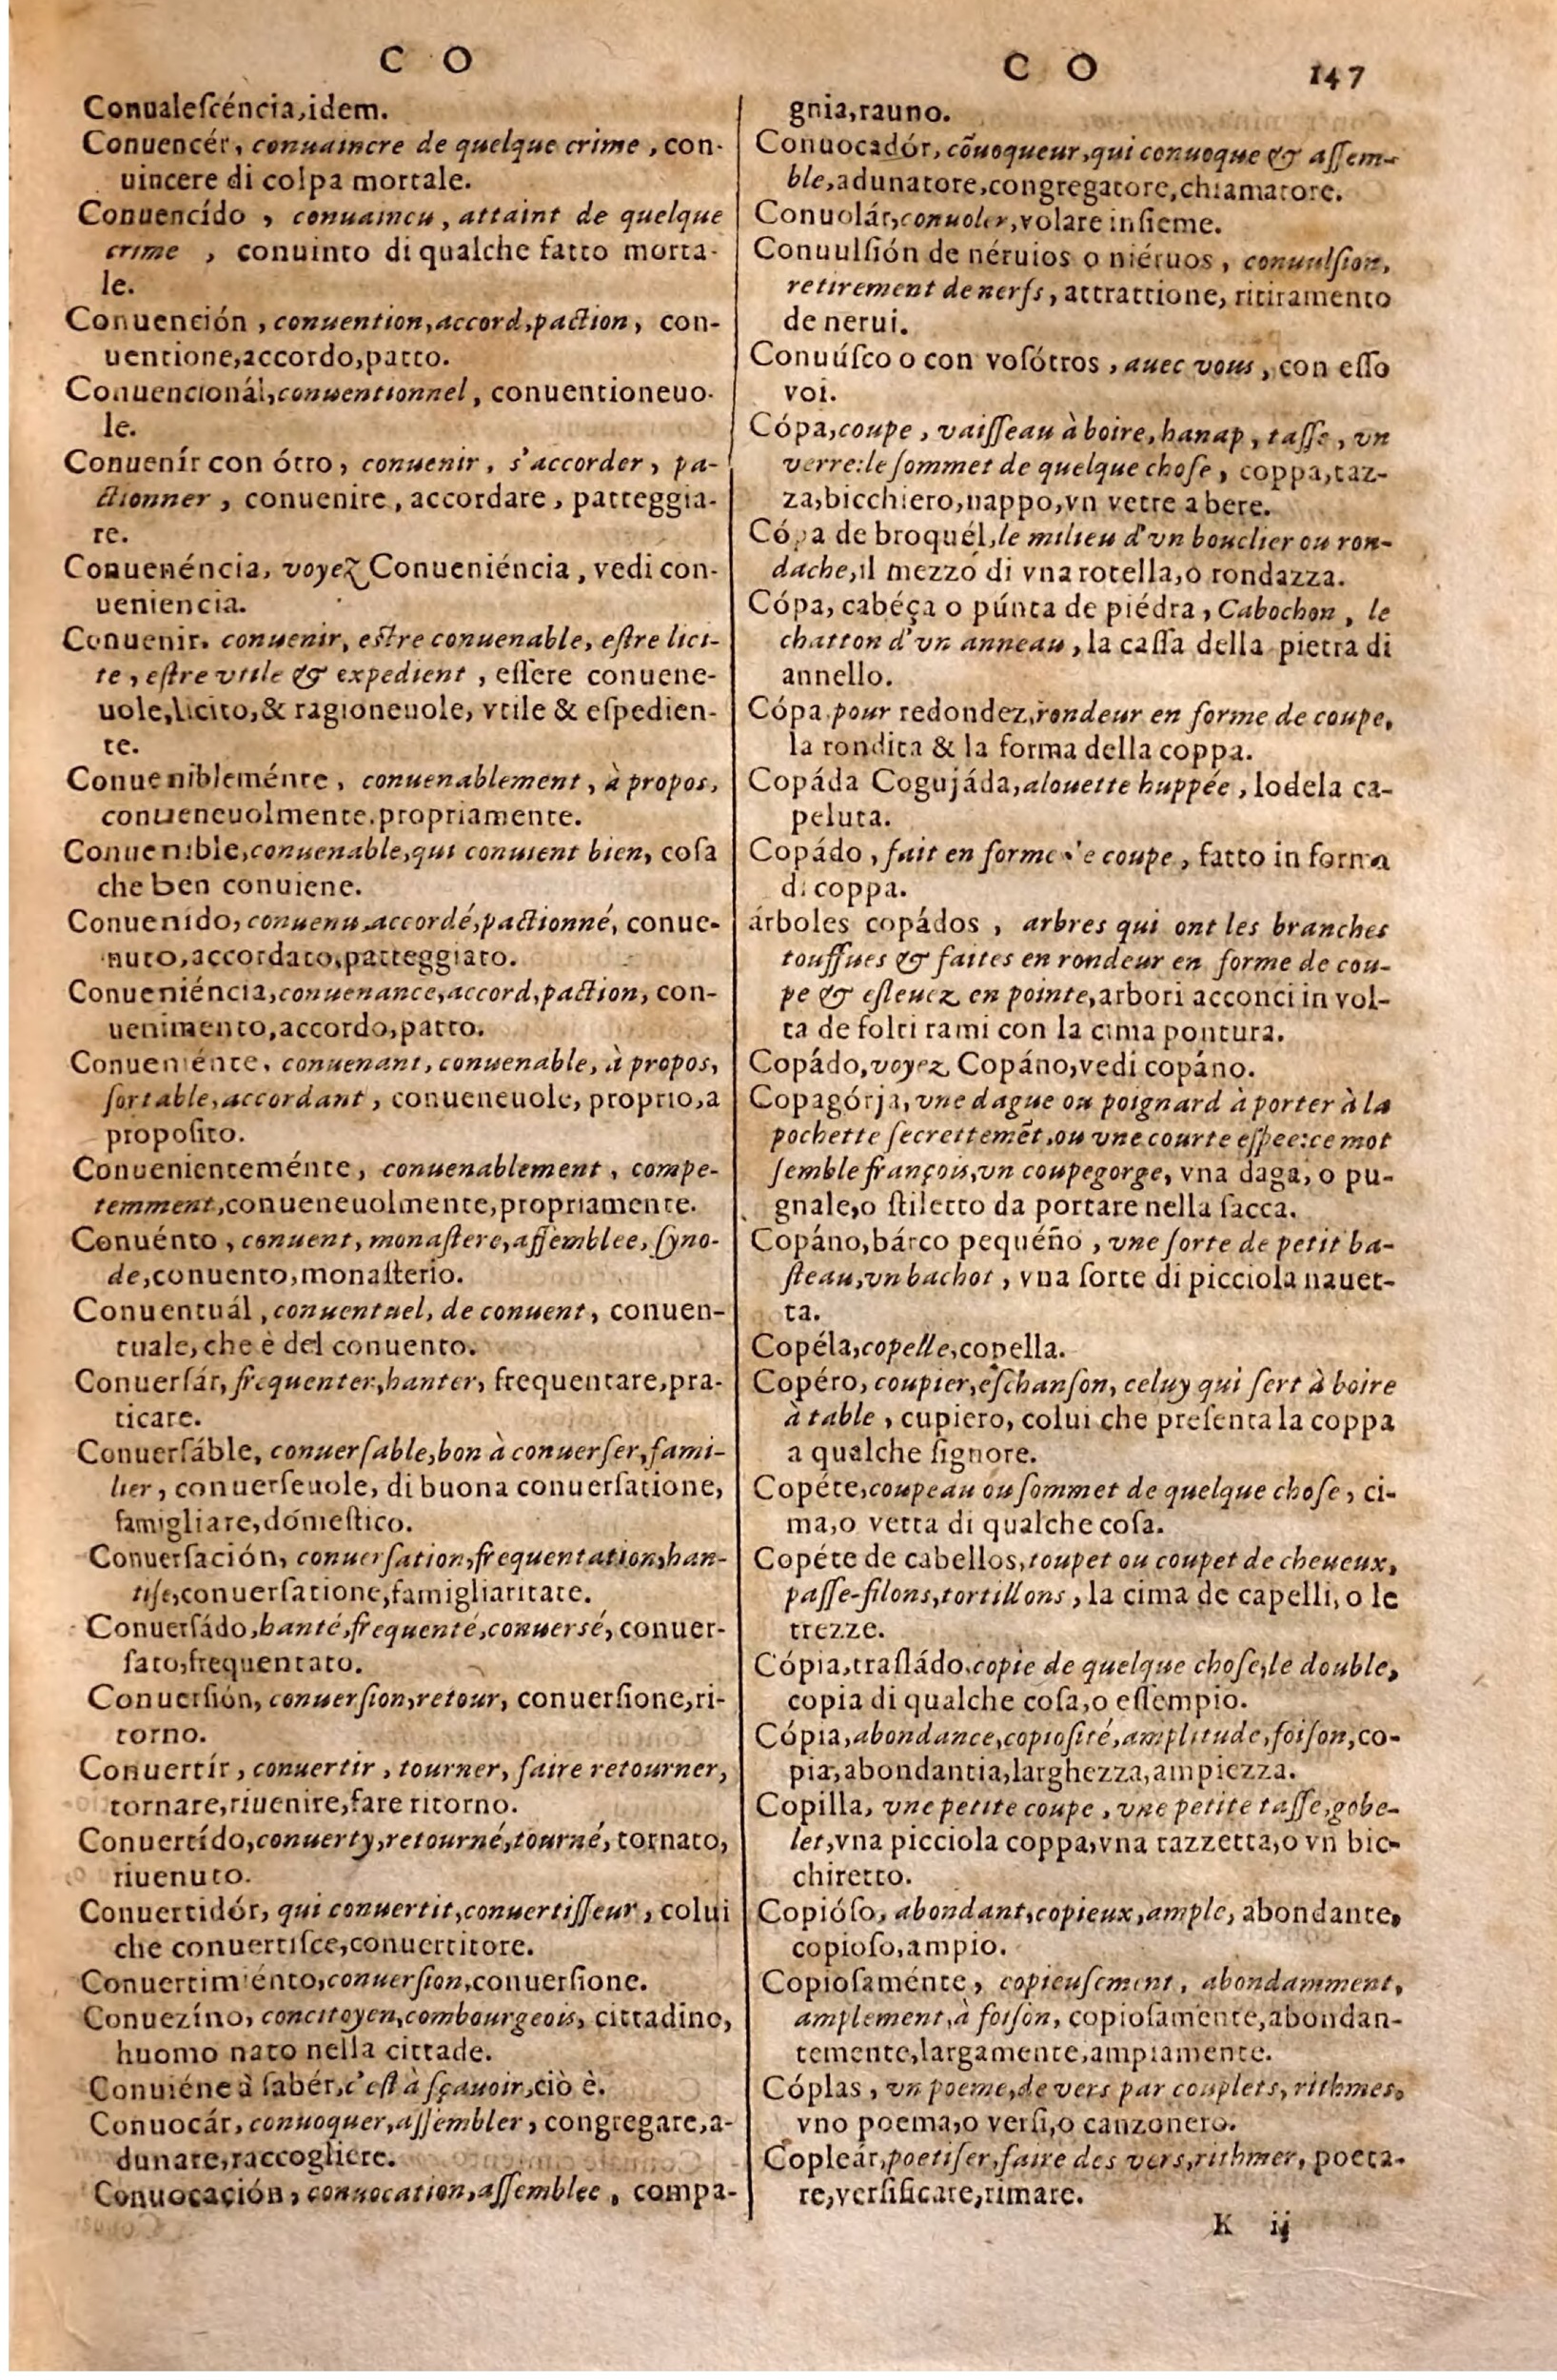 C O
Conualeſcéncia,idem.
Conuencér, conuaincre de quelque crime, con-
uincere di colpa mortale.
Conuencído, conuaincu, attaint de quelque
crime, conuinto di qualche fatto morta-
le.
Conuención, conuention,accord,paction, con-
uentione,accordo,patto.
Conuencionál,conuentionnel, conuentioneuo-
le.
Conuenír con ótro, conuenir, s'accorder, pa-
ctionner, conuenire, accordare, patteggia-
re.
Conuenéncia, voyez Conueniéncia, vedi con-
ueniencia.
Conuenir. conuenir, eſtre conuenable, eſtre lici-
te, eſtre vtile & expedient, eſſere conuene-
uole,licito,& ragioneuole, vtile & eſpedien-
te.
Conuenibleménte, conuenablement, à propos,
conueneuolmente.propriamente.
Conuenible,conuenable,qui conuient bien, coſa
che ben conuiene.
Conuenido, conuenu,accordé,pactionné, conue-
nuto,accordato,patteggiato.
Conueniéncia,conuenance,accord,paction, con-
uenimento,accordo,patto.
Conueniénte, conuenant, conuenable, à propos,
ſortable,accordant, conueneuole, proprio,a
propoſito.
Conuenienteménte, conuenablement, compe-
temment,conueneuolmente,propriamente.
Conuénto, conuent, monaſtere,aſſemblee, ſyno-
de,conuento,monaſterio.
Conuentuál, conuentuel, de conuent, conuen-
tuale, che è del conuento.
Conuerſár, frequenter,hanter, frequentare,pra-
ticare.
Conuerſáble, conuerſable,bon à conuerſer,fami-
lier, conuerſeuole, di buona conuerſatione,
famigliare,domeſtico.
Conuerſación, conuerſation,frequentation,han-
tiſe,conuerſatione,famigliaritate.
Conuerſádo,hanté,frequenté,conuersé, conuer-
ſato,frequentato.
Conuerſión, conuerſion,retour, conuerſione,ri-
torno.
Conuertír, conuertir, tourner, faire retourner,
tornare,riuenire,fare ritorno.
Conuertído,conuerty,retourné,tourné, tornato,
riuenuto.
Conuertidór, qui conuertit,conuertiſſeur, colui
che conuertiſce,conuertitore.
Conuertimiénto,conuerſion,conuerſione.
Conuezíno, concitoyen,combourgeois, cittadino,
huomo nato nella cittade.
Conuiéne à ſabér,c'eſt à ſçauoir,ciò è.
Conuocár, conuoquer,aſſembler, congregare,a-
dunare,raccogliere.
Conuocación, conuocation,aſſemblee, compa-
C O 147
gnia,rauno.
Conuocadór, cõuoqueur,qui conuoque & aſſem-
ble,adunatore,congregatore,chiamatore.
Conuolár,conuoler,volare inſieme.
Conuulſión de néruios o niéruos, conuulſion,
retirement de nerfs, attrattione, ritiramento
de nerui.
Conuúſco o con voſótros, auec vous, con eſſo
voi.
Cópa,coupe, vaiſſeau à boire,hanap, taſſe, vn
verre:le ſommet de quelque choſe, coppa,taz-
za,bicchiero,nappo,vn vetre a bere.
Cópa de broquél,le milieu d'vn bouclier ou ron-
dache,il mezzo di vna rotella,o rondazza.
Cópa, cabéça o púnta de piédra, Cabochon, le
chatton d'vn anneau, la caſſa della pietra di
annello.
Cópa pour redondez,rondeur en forme de coupe,
la rondita & la forma della coppa.
Copáda Cogujáda,alouette huppée, lodela ca-
peluta.
Copádo, fait en forme de coupe, fatto in forma
di coppa.
árboles copádos, arbres qui ont les branches
touffues & faites en rondeur en forme de cou-
pe & eſleuez en pointe,arbori acconci in vol-
ta de folti rami con la cima pontura.
Copádo,voyez Copáno,vedi copáno.
Copagórja, vne dague ou poignard à porter à la
pochette ſecrettemẽt,ou vne courte eſpee:ce mot
ſemble françois,vn coupegorge, vna daga, o pu-
gnale,o ſtiletto da portare nella ſacca.
Copáno,bárco pequéño, vne ſorte de petit ba-
ſteau,vn bachot, vna ſorte di picciola nauet-
ta.
Copéla,copelle,copella.
Copéro, coupier,eſchanſon, celuy qui ſert à boire
à table, cupiero, colui che preſenta la coppa
a qualche ſignore.
Copéte,coupeau ou ſommet de quelque choſe, ci-
ma,o vetta di qualche coſa.
Copéte de cabellos,toupet ou coupet de cheueux,
paſſe-filons,tortillons, la cima de capelli, o le
trezze.
Cópia,traſládo,copie de quelque choſe,le double,
copia di qualche coſa,o eſſempio.
Cópia,abondance,copioſité,amplitude,foiſon,co-
pia,abondantia,larghezza,ampiezza.
Copilla, vne petite coupe, vne petite taſſe,gobe-
let,vna picciola coppa,vna tazzetta,o vn bic-
chiretto.
Copióſo, abondant,copieux,ample, abondante,
copioſo,ampio.
Copioſaménte, copieuſement, abondamment,
amplement,à foiſon, copioſamente,abondan-
temente,largamente,ampiamente.
Cóplas, vn poeme,de vers par couplets, rithmes,
vno poema,o verſi,o canzonero.
Copleár,poetiſer,faire des vers,rithmer, poeta-
re,verſificare,rimare.
K ij